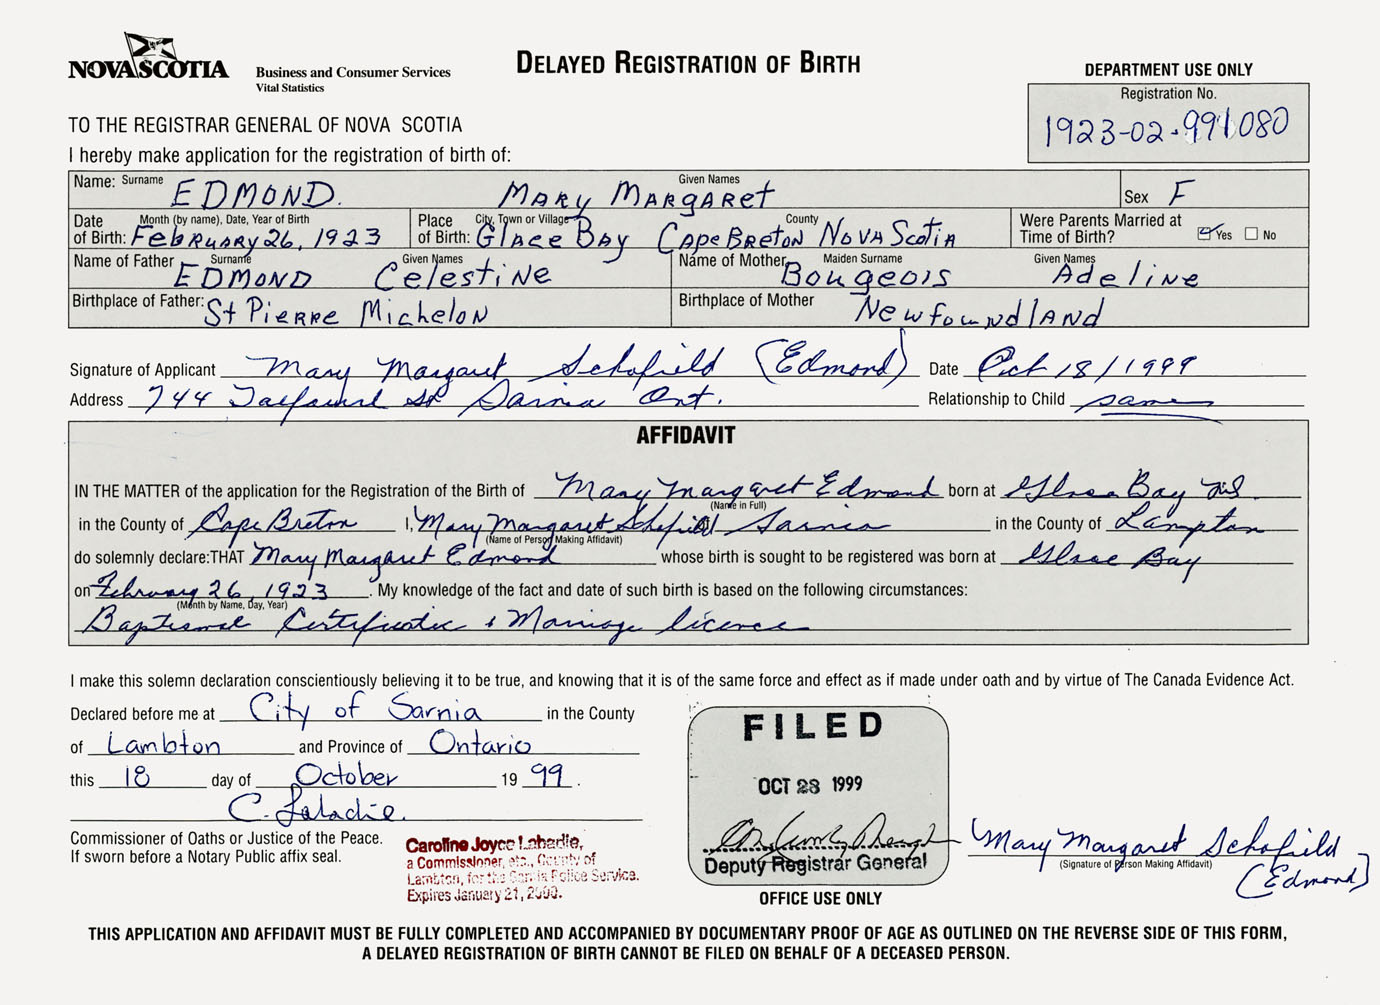 NOVA SCOTIA
Business and Consumer Services
Vital Statistics
DELAYED REGISTRATION OF BIRTH
DEPARTMENT USE ONLY
Registration No.
1923-02-991080
TO THE REGISTRAR GENERAL OF NOVA SCOTIA
I hereby make application for the registration of birth of:
Name: Surname EDMOND. Given Names MARY MARGARET Sex F
Date of Birth: Month (by name), Date, Year of Birth February 26, 1923 Place of Birth: City, Town or Village Glace Bay County Cape Breton Nova Scotia Were Parents Married at Time of Birth? Yes No
Name of Father Surname EDMOND Given Names Celestine Name of Mother Maiden Surname Bougeois Given Names Adeline
Birthplace of Father: St Pierre Michelon Birthplace of Mother Newfoundland
Signature of Applicant Mary Margaret Schofield (Edmond) Date Oct 18/1999
Address 744 St Sarnia Ont. Relationship to Child same
AFFIDAVIT
IN THE MATTER of the application for the Registration of the Birth of Mary Margaret Edmond born at Glace Bay NS.
(Name in Full)
in the County of Cape Breton I, Mary Margaret Schofield Sarnia in the County of Lampton
(Name of Person Making Affidavit)
do solemnly declare: THAT Mary Margaret Edmond whose birth is sought to be registered was born at Glace Bay
on February 26, 1923. My knowledge of the fact and date of such birth is based on the following circumstances:
(Month by Name, Day, Year)
Baptismal Certificate + Marriage licence
I make this solemn declaration conscientiously believing it to be true, and knowing that it is of the same force and effect as if made under oath and by virtue of The Canada Evidence Act.
Declared before me at City of Sarnia in the County
of Lambton and Province of Ontario
this 18 day of October 1999.
C. Labadie.
Commissioner of Oaths or Justice of the Peace.
If sworn before a Notary Public affix seal.
Caroline Joyce Labadie,
a Commissioner, etc., County of
Lambton, for the Sarnia Police Service.
Expires January 21, 2000.
FILED
OCT 28 1999
Deputy Registrar General
OFFICE USE ONLY
Mary Margaret Schofield
(Signature of Person Making Affidavit)
(Edmond)
THIS APPLICATION AND AFFIDAVIT MUST BE FULLY COMPLETED AND ACCOMPANIED BY DOCUMENTARY PROOF OF AGE AS OUTLINED ON THE REVERSE SIDE OF THIS FORM,
A DELAYED REGISTRATION OF BIRTH CANNOT BE FILED ON BEHALF OF A DECEASED PERSON.